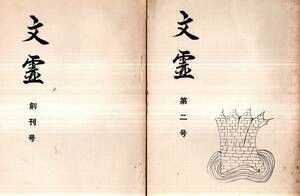 文霊
創刊号
文霊
第二号